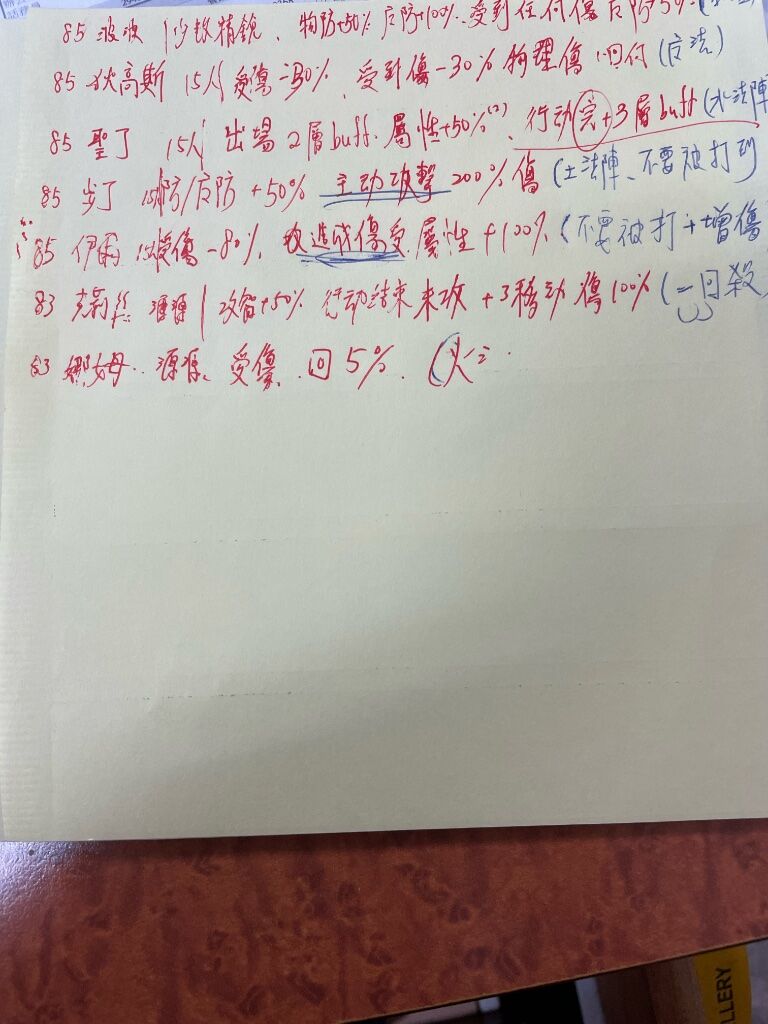 85 波波 少数精銳、物防+50% 反防+100%. 受到任何傷
85 狄高斯 15人 受傷-30%、受到傷-30% 物理傷 (反法)
85 聖了 15人 出場2層buff. 屬性+50%、行动完+3層buff (水法陣
85 步了 防/反防+50% 主动攻擊200%傷 (土法陣、不要被打到
85 伊爾 受傷-80%. 被造成傷受屬性+100% (不要被打+增傷
83 克莉絲 源源 +50% 行动结束未攻+3移动 傷100% (一回殺
83 娜姆.. 源源、受傷、回5%.
LLERY